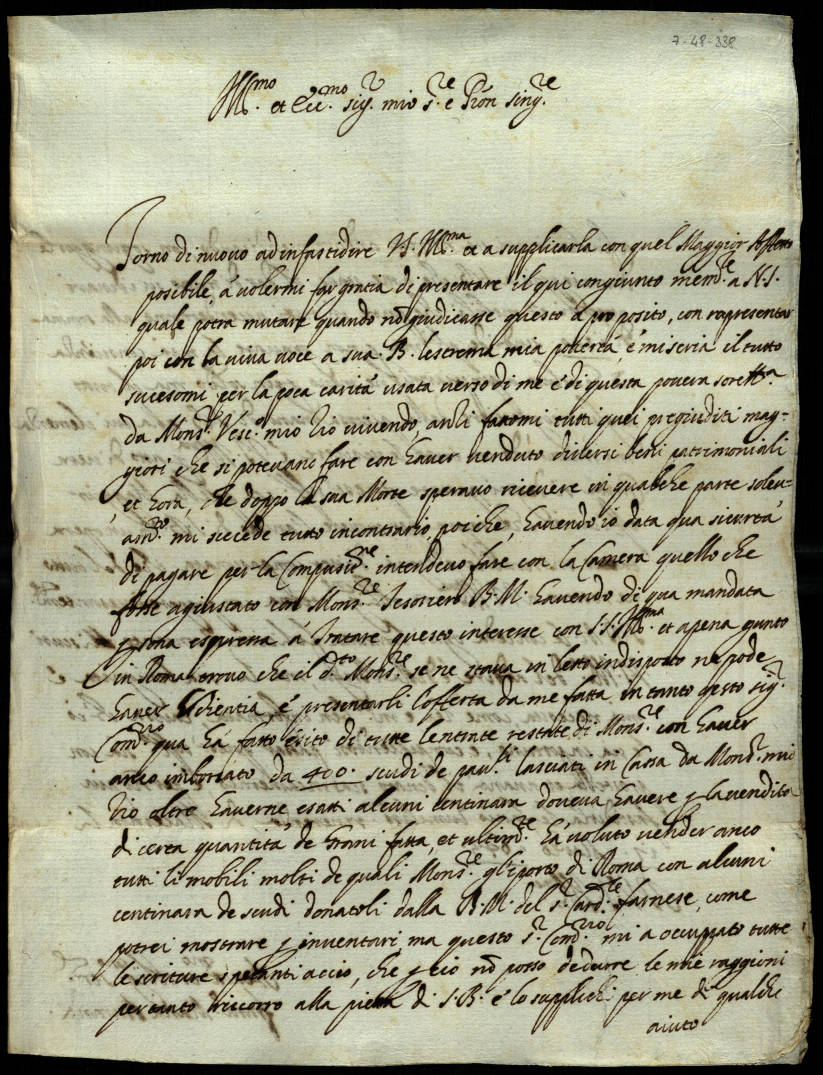 7-48-338
Ill.mo et Ecc.mo sig.r mio s.re e Pron sing.re
Torno di nuovo ad infastidire V.S. Ill.ma et a supplicarla con quel Maggior
posibile, a volermi far gratia di presentare il qui congiunto mem.le a N.S.
quale potra mutare quando nõ giudicasse questo a pro posito, con rapresentar
poi con la viva voce a sua B. lestrema mia poverta e miseria il tutto
sucesomi per la poca carita usata verso di me e di questa povera
da Mons.r Vesc.o mio zio vivendo, anzi fattomi tutti quei pregiuditi mag-
giori che si potevano fare con haver venduto diversi beni patrimoniali
et hora, che doppo la sua Morte speravo ricevere in qualche parte solev-
am.to mi succede tutto incontrario, poiche, havendo io data qua sicurta
di pagare per la Compusit.ne intendevo fare con la Camera quello che
fosse agiustato con Mons.re Tesoriero B.M. havendo di qua mandata
p.sona espressa a Tratare questo interesse con S.S. Ill.ma et apena giunto
in Roma trovo che il d.to Mons.re se ne stava in letto indisposto ne pode
haver Udientia, e presentarli l'offerta da me fatta in tanto questo sig.r
Com.rio qua ha fatto esito di tutte lentrate restate di Mons.re con haver
anco imborsato da 400. scudi de pauli lasciati in Cassa da Mons.r mio
zio oltre haverne esatti alcuni centinara doveva havere p la vendita
di certa quantita de Grani fatta, et ultim.te ha voluto vender anco
tutti li mobili molti de quali Mons.re gli porto di Roma con alcuni
centinara de scudi donatoli dalla B.M. del s.r Card.le farnese, come
potrei mostrare p inventari, ma questo s.r Com.rio mi a occupato tutte
le scritture spetanti accio, che p cio nõ posso dedurre le mie raggioni
per tanto riccorro alla pieta di S.B. e lo supplichi per me di qualche
aiuto